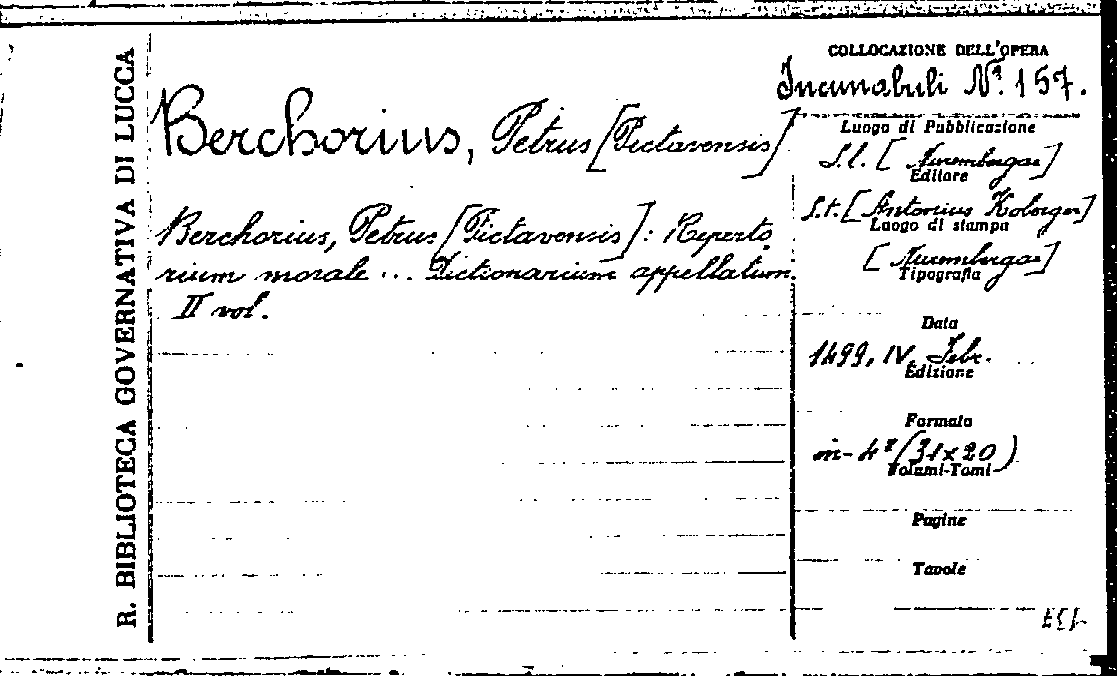 R. BIBLIOTECA GOVERNATIVA DI LUCCA
COLLOCAZIONE DELL'OPERA
Incunabuli Nº 157.
Berchorius, Petrus [Pictavensis]
Berchorius, Petrus [Pictavensis]: Reperto
rium morale ... Dictionarium appellatum.
II vol.
Luogo di Pubblicazione
S.l. [Nurembergae]
Editore
S.t. [Antonius Koberger]
Luogo di stampa
[Nurembergae]
Tipografia
Data
1499, IV, Febr.
Edizione
Formato
in-4º (31x20)
Volumi-Tomi
Pagine
Tavole